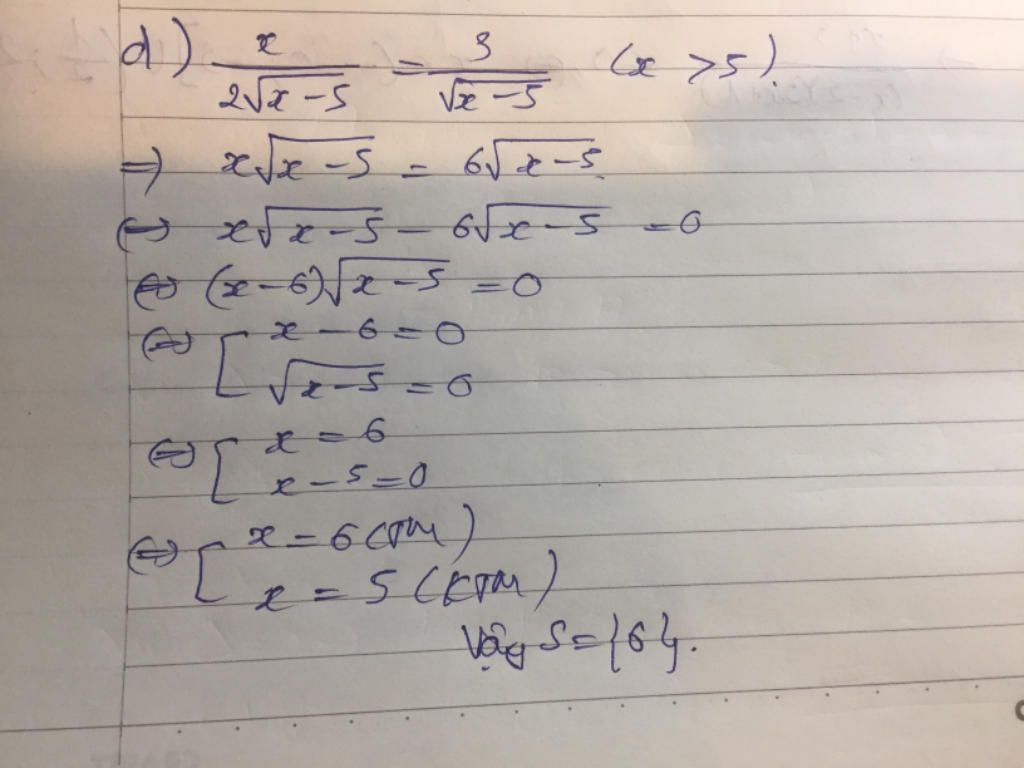 d) x/(2√(x-5)) = 3/√(x-5) (x > 5).
=> x√(x-5) = 6√(x-5)
<=> x√(x-5) - 6√(x-5) = 0
<=> (x-6)√(x-5) = 0
<=> [ x-6 = 0
√(x-5) = 0
<=> [ x = 6
x-5 = 0
<=> [ x = 6 (TM)
x = 5 (KTM)
Vậy S = {6}.